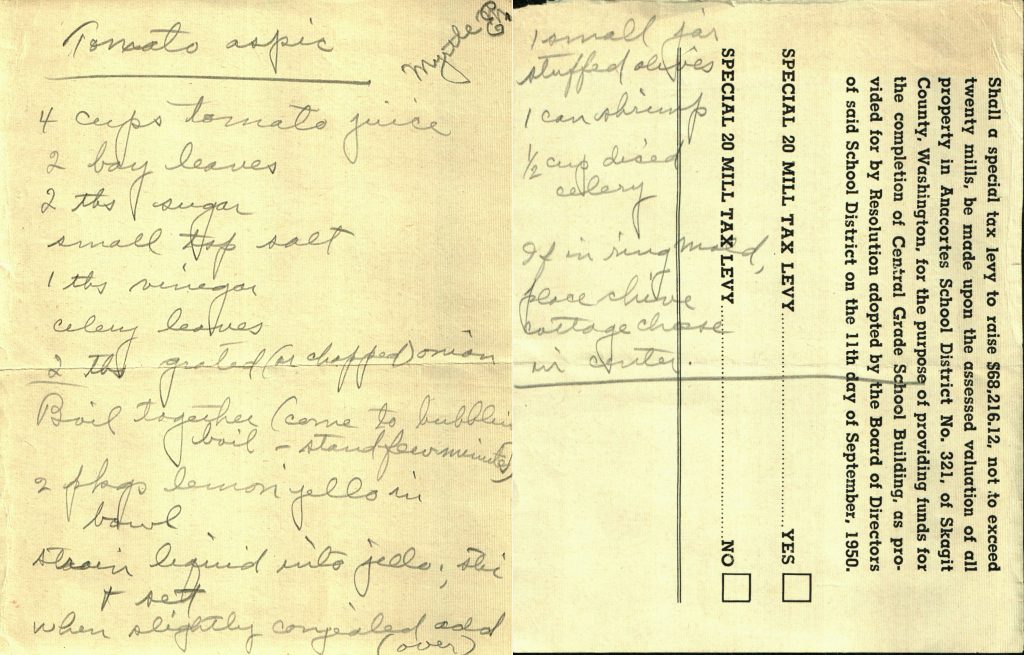 Tomato aspic
Myrtle
4 cups tomato juice
2 bay leaves
2 tbs sugar
small tsp salt
1 tbs vinegar
celery leaves
2 tbs grated (or chopped) onion
Boil together (come to bubblin
boil - stand few minutes)
2 pkgs lemon jello in
bowl
strain liquid into jello; stir
+ set
when slightly congealed add
(over)
1 small jar
stuffed olives
1 can shrimp
1/2 cup diced
celery
If in ring mold,
place chive
cottage cheese
in center.
Shall a special tax levy to raise $68,216.12, not to exceed
twenty mills, be made upon the assessed valuation of all
property in Anacortes School District No. 321, of Skagit
County, Washington, for the purpose of providing funds for
the completion of Central Grade School Building, as pro-
vided for by Resolution adopted by the Board of Directors
of said School District on the 11th day of September, 1950.
SPECIAL 20 MILL TAX LEVY............YES
SPECIAL 20 MILL TAX LEVY............NO